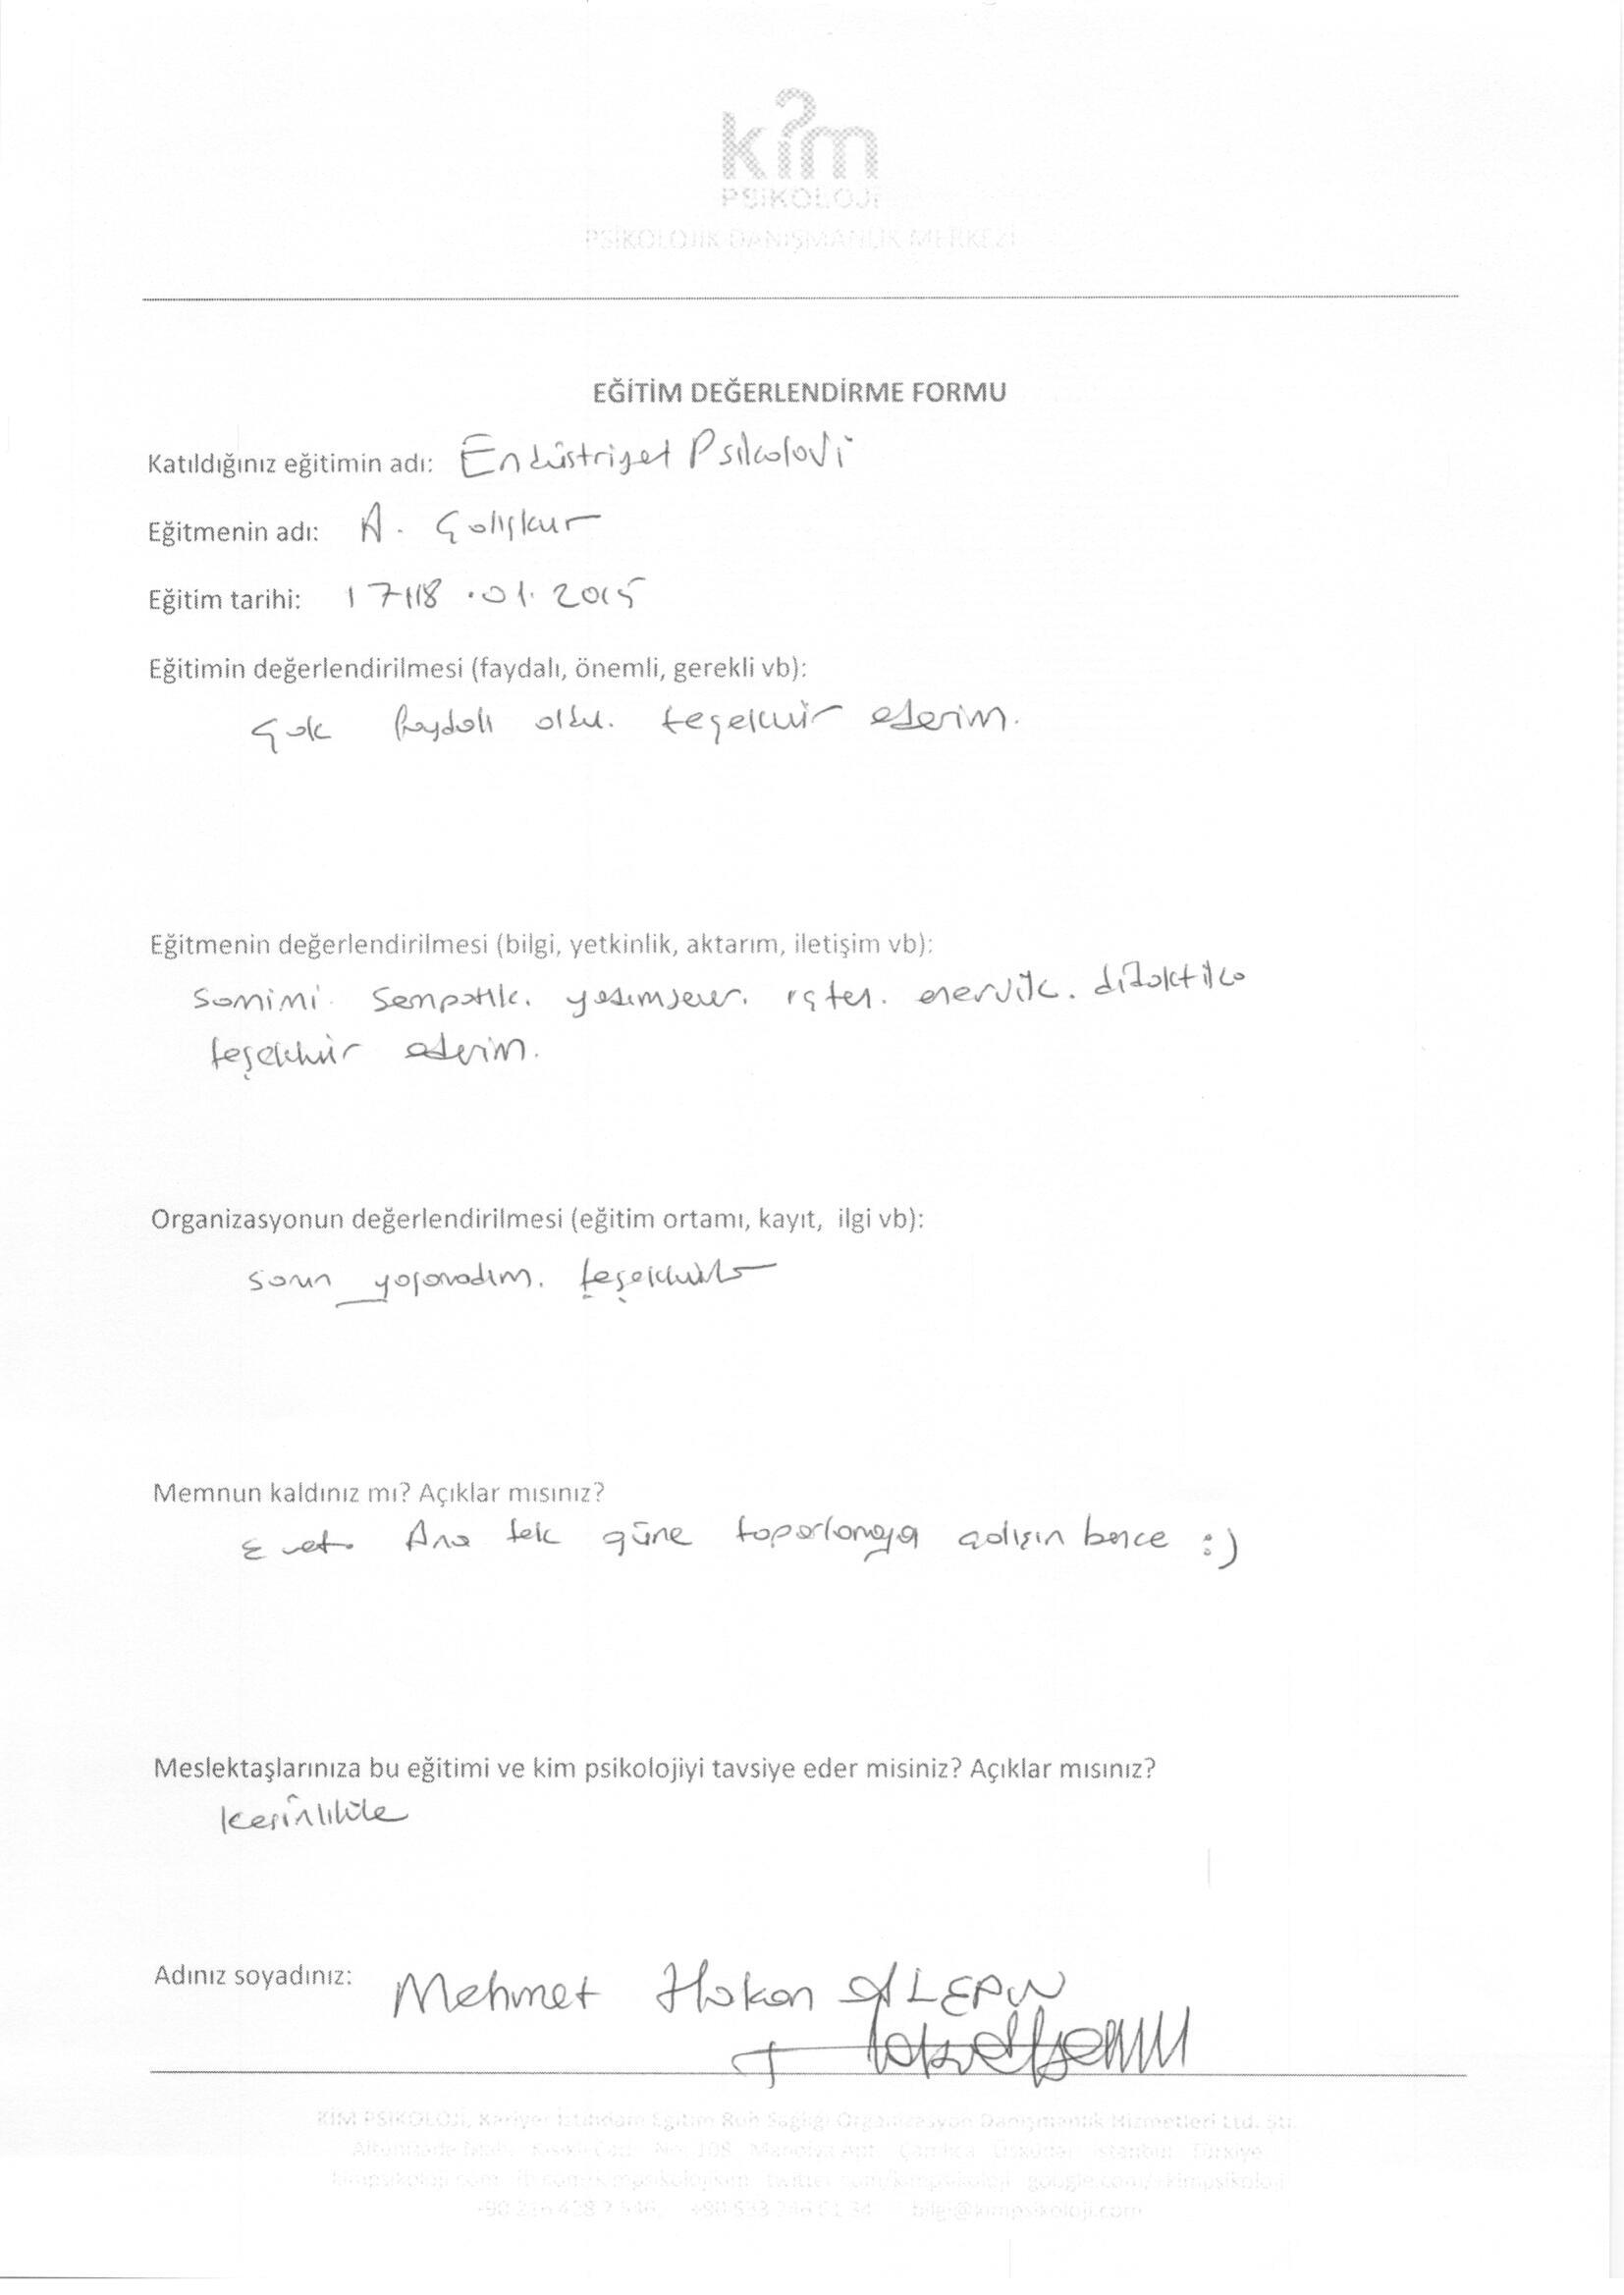 kim
PSİKOLOJİ
PSİKOLOJİK DANIŞMANLIK MERKEZİ
EĞİTİM DEĞERLENDİRME FORMU
Katıldığınız eğitimin adı: Endüstriyel Psikoloji
Eğitmenin adı: A. Çalışkur
Eğitim tarihi: 17-18.01.2015
Eğitimin değerlendirilmesi (faydalı, önemli, gerekli vb):
Çok faydalı oldu. teşekkür ederim.
Eğitmenin değerlendirilmesi (bilgi, yetkinlik, aktarım, iletişim vb):
samimi. sempatik. içten. enerjik. didaktik
teşekkür ederim.
Organizasyonun değerlendirilmesi (eğitim ortamı, kayıt, ilgi vb):
sorun yaşamadım. teşekkürler
Memnun kaldınız mı? Açıklar mısınız?
Evet. Ama tek güne toparlamaya çalışın bence :)
Meslektaşlarınıza bu eğitimi ve kim psikolojiyi tavsiye eder misiniz? Açıklar mısınız?
kesinlikle
Adınız soyadınız: Mehmet Hakan
KİM PSİKOLOJİ, Kariyer İstihdam Eğitim Ruh Sağlığı Organizasyon Danışmanlık Hizmetleri Ltd. Şti.
No: 108 Çamlıca Üsküdar İstanbul Türkiye
kimpsikoloji.com
bilgi@kimpsikoloji.com